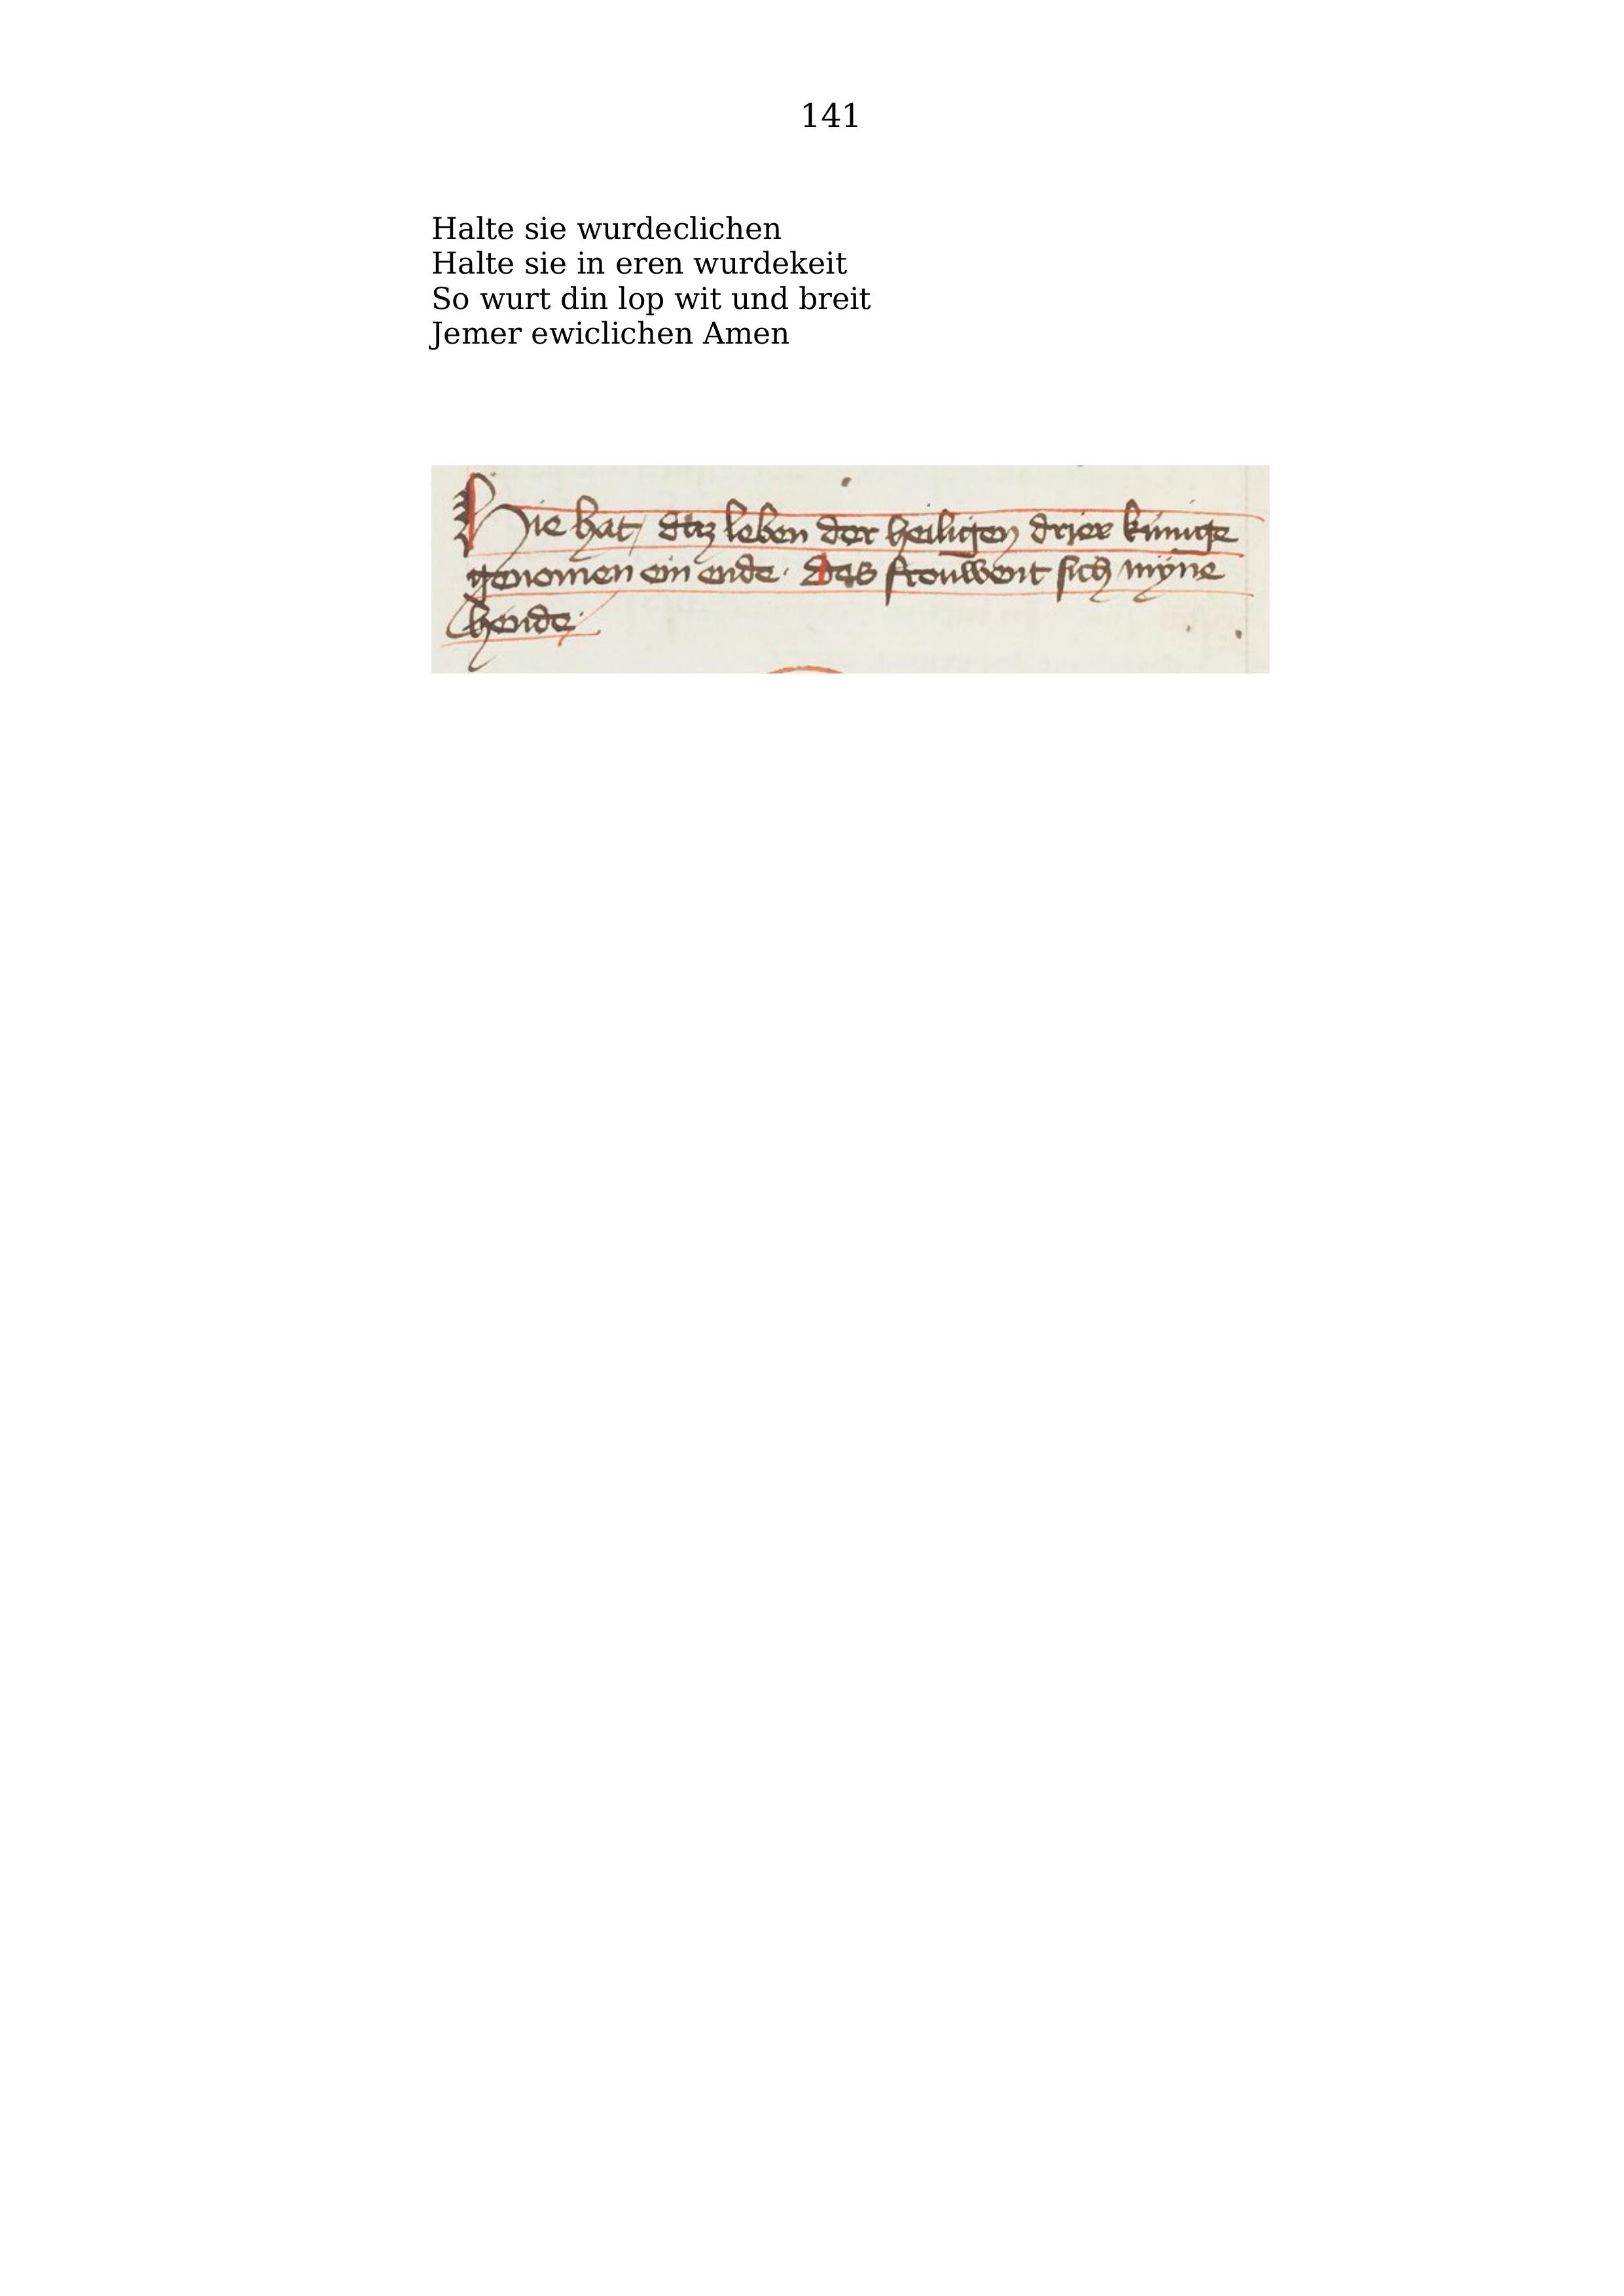 141
Halte sie wurdeclichen
Halte sie in eren wurdekeit
So wurt din lop wit und breit
Jemer ewiclichen Amen
Hie hat / daz leben der heiligen drier kúnige
genomen ein ende · Des frouwent sich myne
hende ·